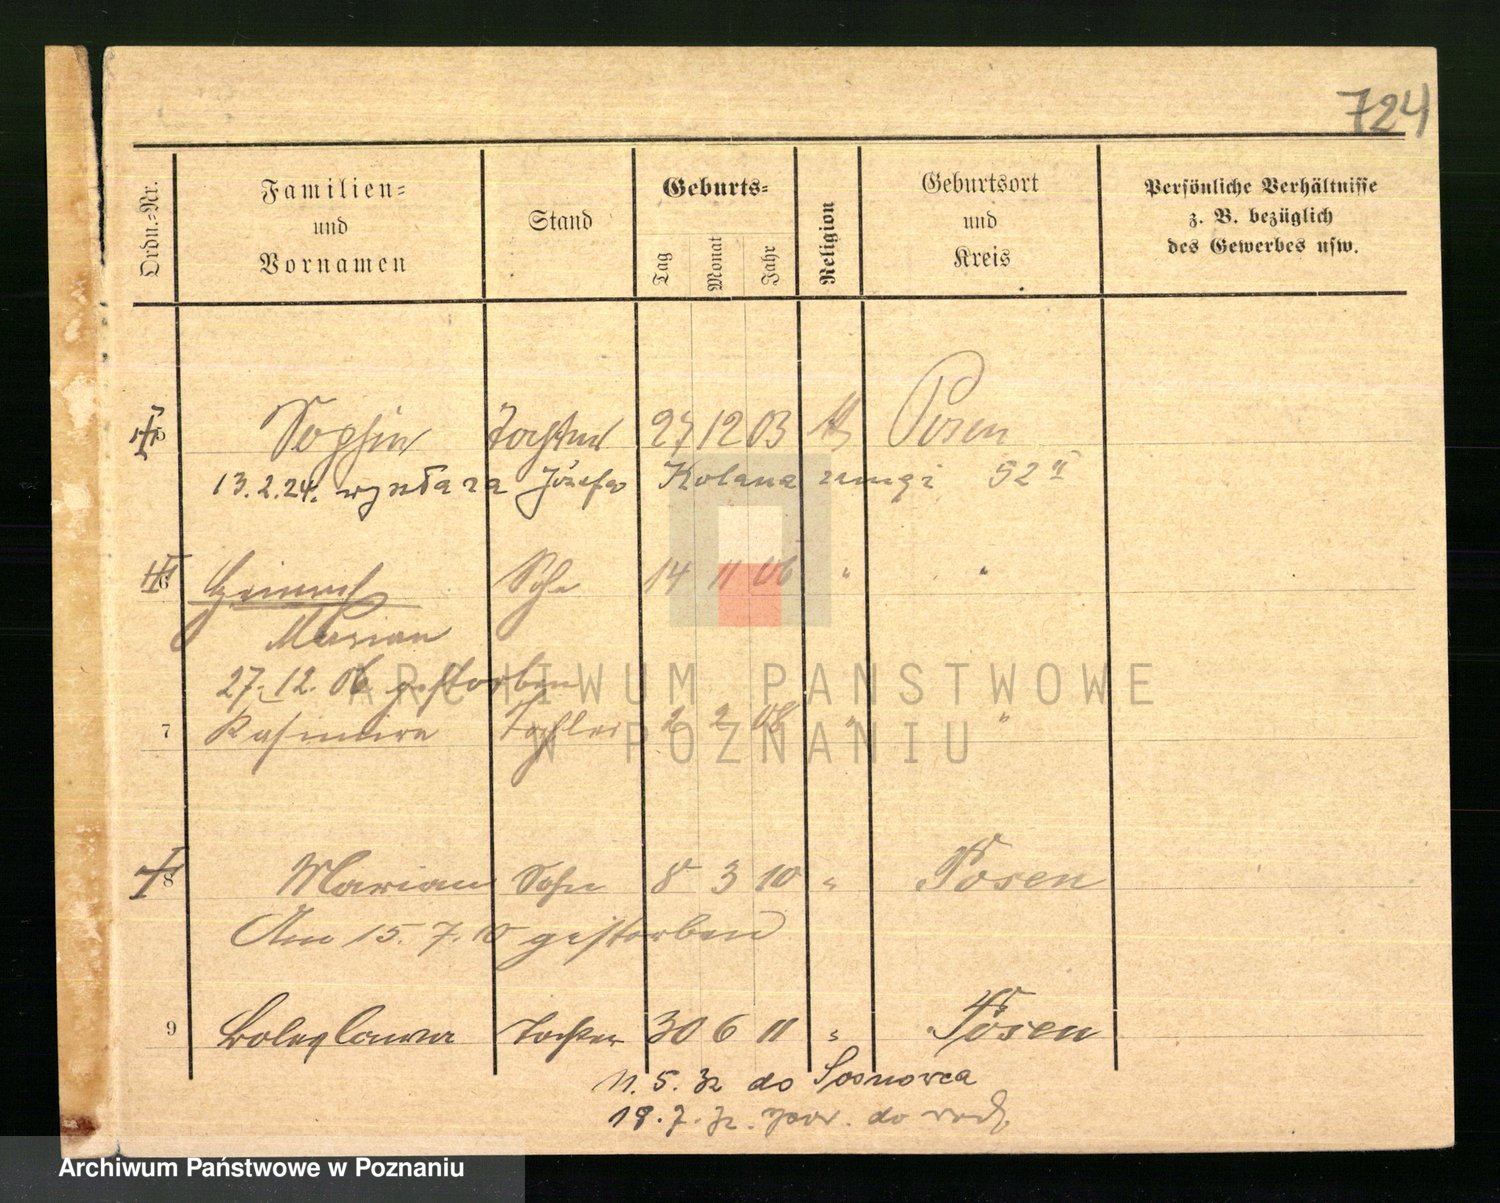 724
Ordn.-Nr.
Familien-
und
Vornamen
Stand
Geburts-
Tag
Monat
Jahr
Religion
Geburtsort
und
Kreis
Persönliche Verhältnisse
z. B. bezüglich
des Gewerbes usw.
5 Sophie Tochter 27 12 03 Posen
13.2.24. wyszła za Józefa Kolana 52
6 Heinrich Sohn 14 11 06 " "
Marian
27.12.06 gestorben
7 Kasimira Tochter 2 2 08 " "
8 Marian Sohn 8 3 10 " Posen
Am 15.7.10 gestorben
9 Boleslawa Tochter 30 6 11 " Posen
11.5.32 do Sosnowca
18.7.32. pow. do rodz.
ARCHIWUM PAŃSTWOWE
W POZNANIU
Archiwum Państwowe w Poznaniu